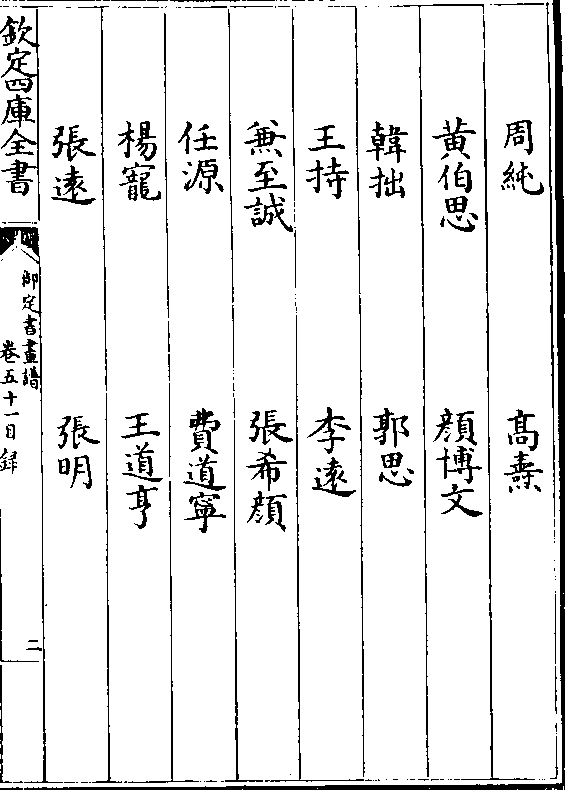 周純　高燾
黃伯思　顔博文
韓拙　郭思
王持　李遠
兼至誠　張希顔
任源　費道寧
楊寵　王道亨
張遠　張明
欽定四庫全書
御定書畫譜
卷五十一目録
二